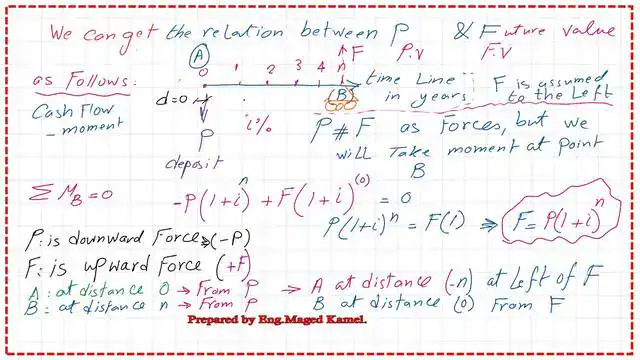 We can get the relation between P & Future value
P.V F.V
A
F
as Follows:
0 1 2 3 4 n
time Line
in years
F is assumed
to the Left
d=0
B
Cash Flow
- moment
i%
P
deposit
P # F as Forces, but we
will Take moment at point
B
ΣM_B=0
-P(1+i)^n + F(1+i)^(0) = 0
P(1+i)^n = F(1) ⇒ F=P(1+i)^n
P: is downward Force ⇒(-P)
F: is upward Force (+F)
A: at distance 0 → From P ⇒ A at distance (-n) at Left of F
B: at distance n → From P B at distance (0) From F
Prepared by Eng.Maged Kamel.